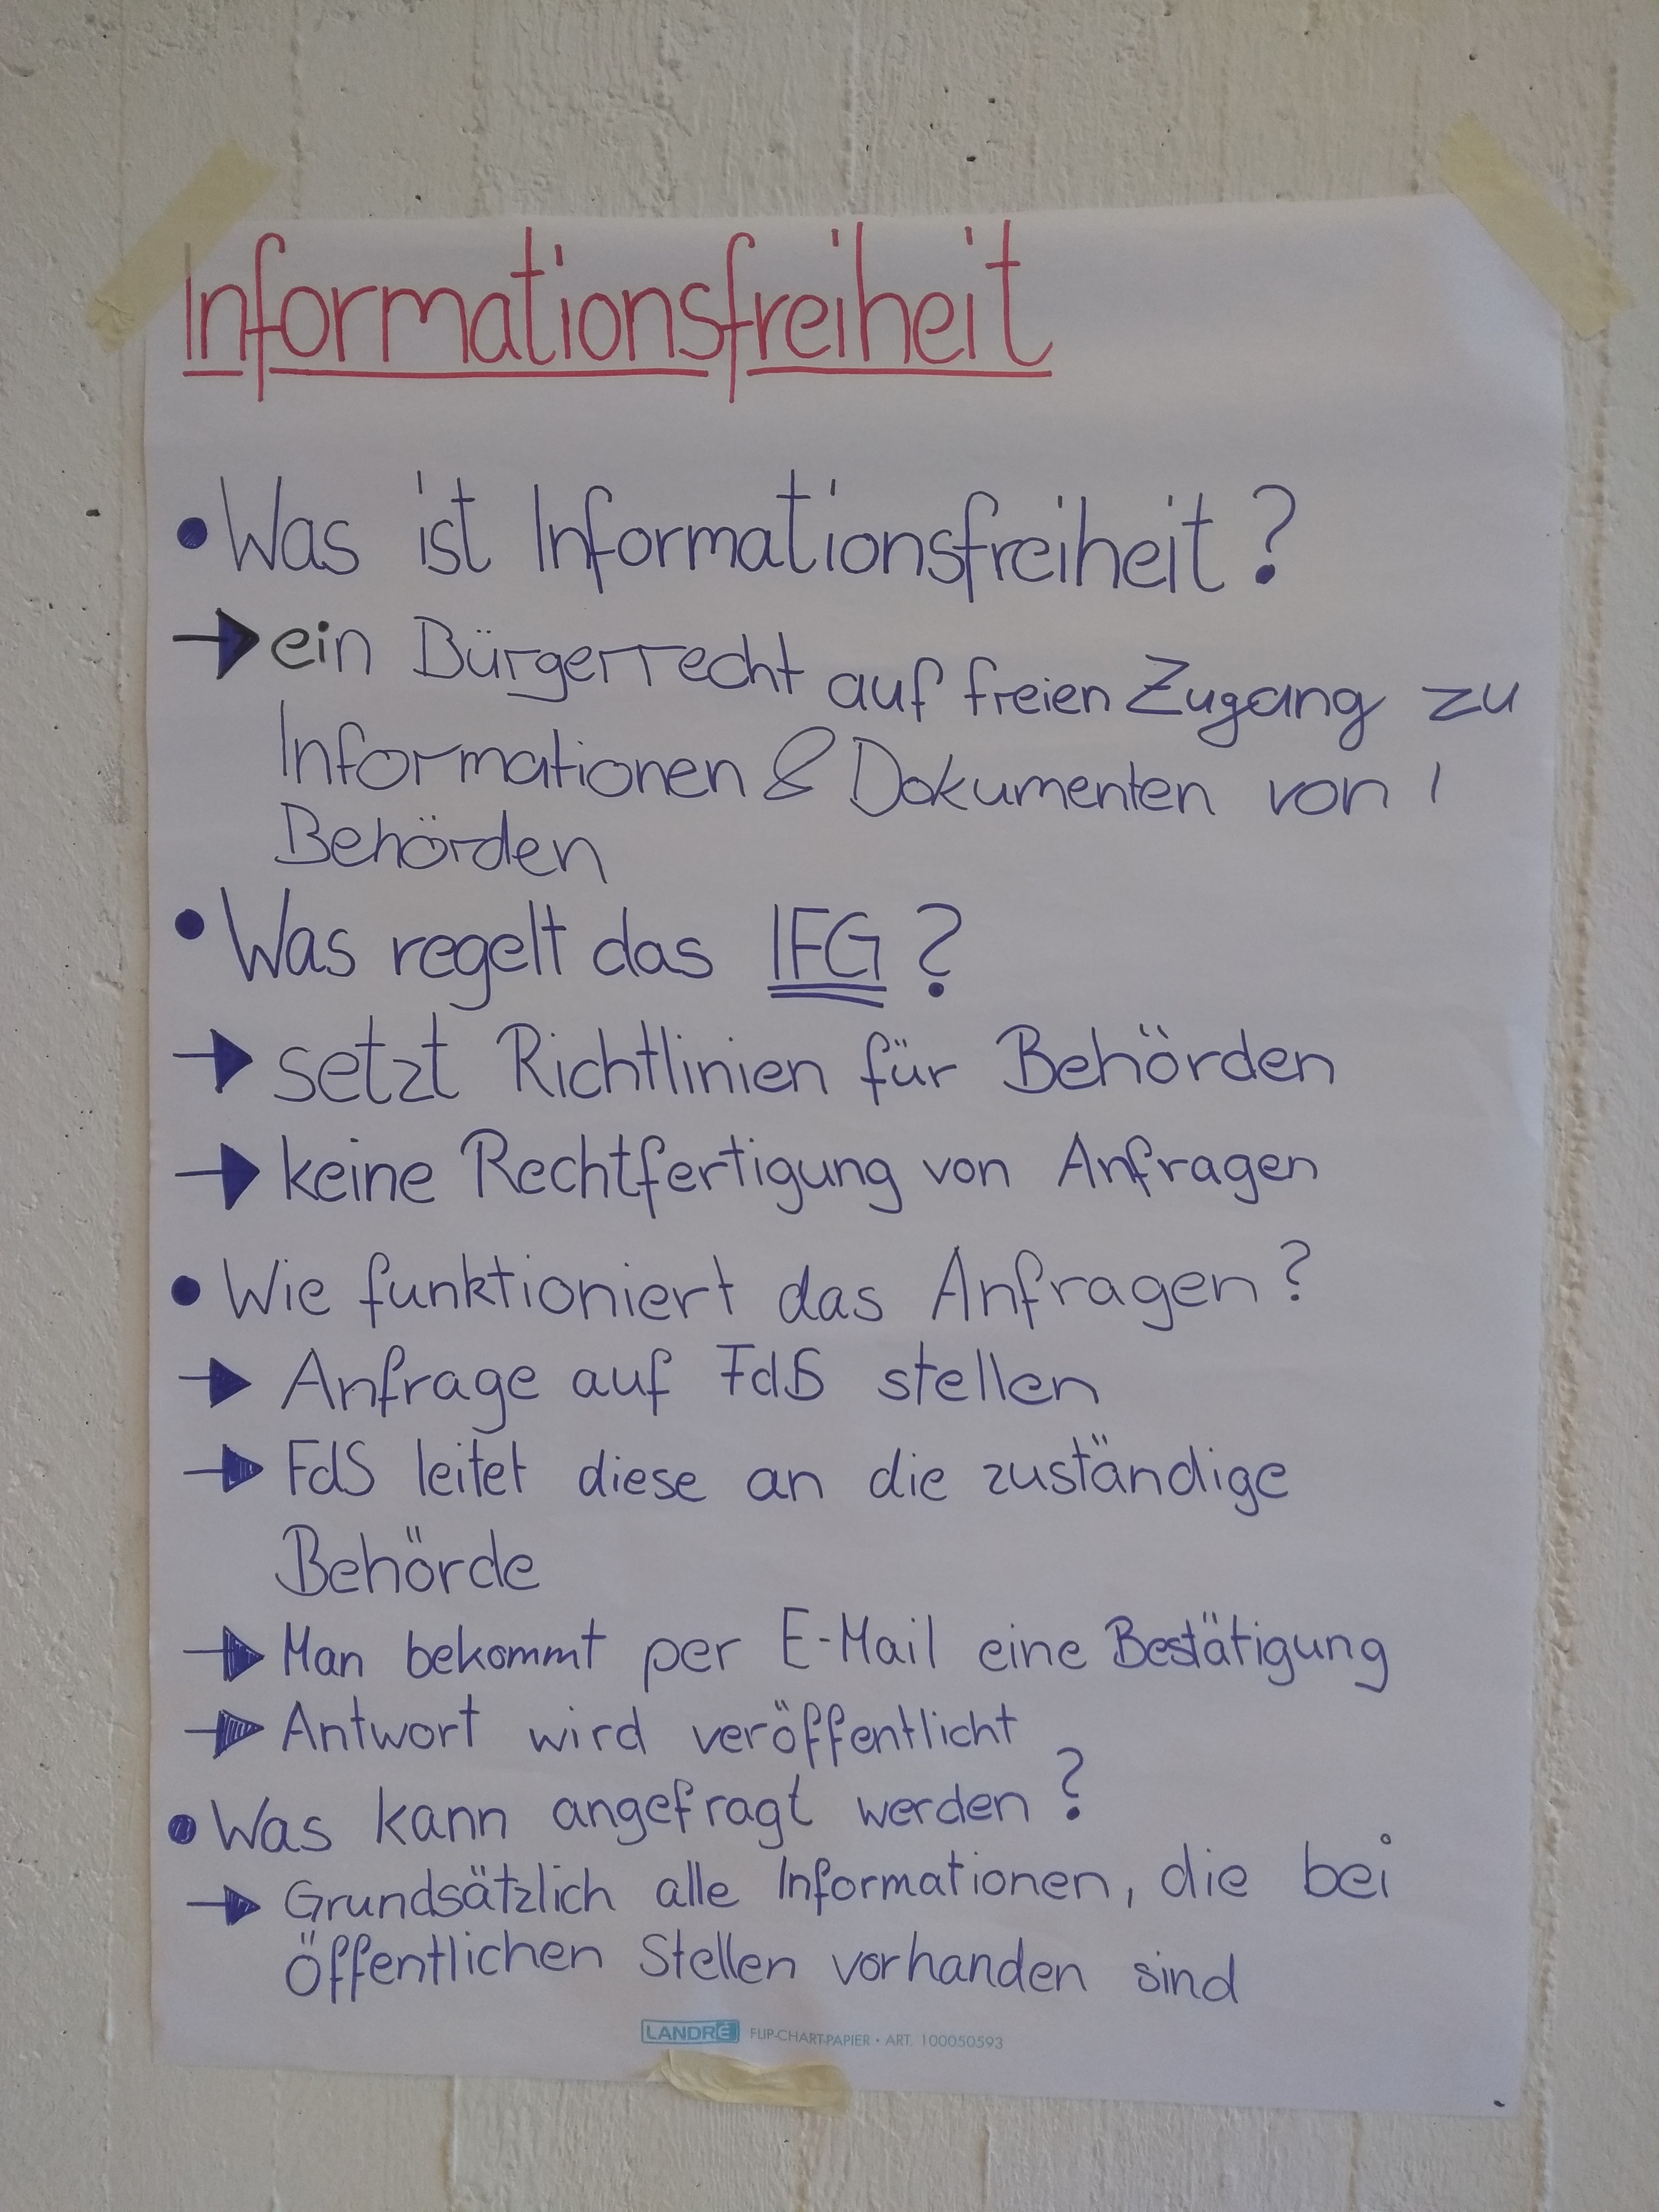 Informationsfreiheit
• Was ist Informationsfreiheit?
→ ein Bürgerrecht auf freien Zugang zu
Informationen & Dokumenten von
Behörden
• Was regelt das IFG?
→ setzt Richtlinien für Behörden
→ keine Rechtfertigung von Anfragen
• Wie funktioniert das Anfragen?
→ Anfrage auf FdS stellen
→ FdS leitet diese an die zuständige
Behörde
→ Man bekommt per E-Mail eine Bestätigung
→ Antwort wird veröffentlicht
• Was kann angefragt werden?
→ Grundsätzlich alle Informationen, die bei
öffentlichen Stellen vorhanden sind
LANDRÉ FLIP-CHART-PAPIER • ART. 100050593